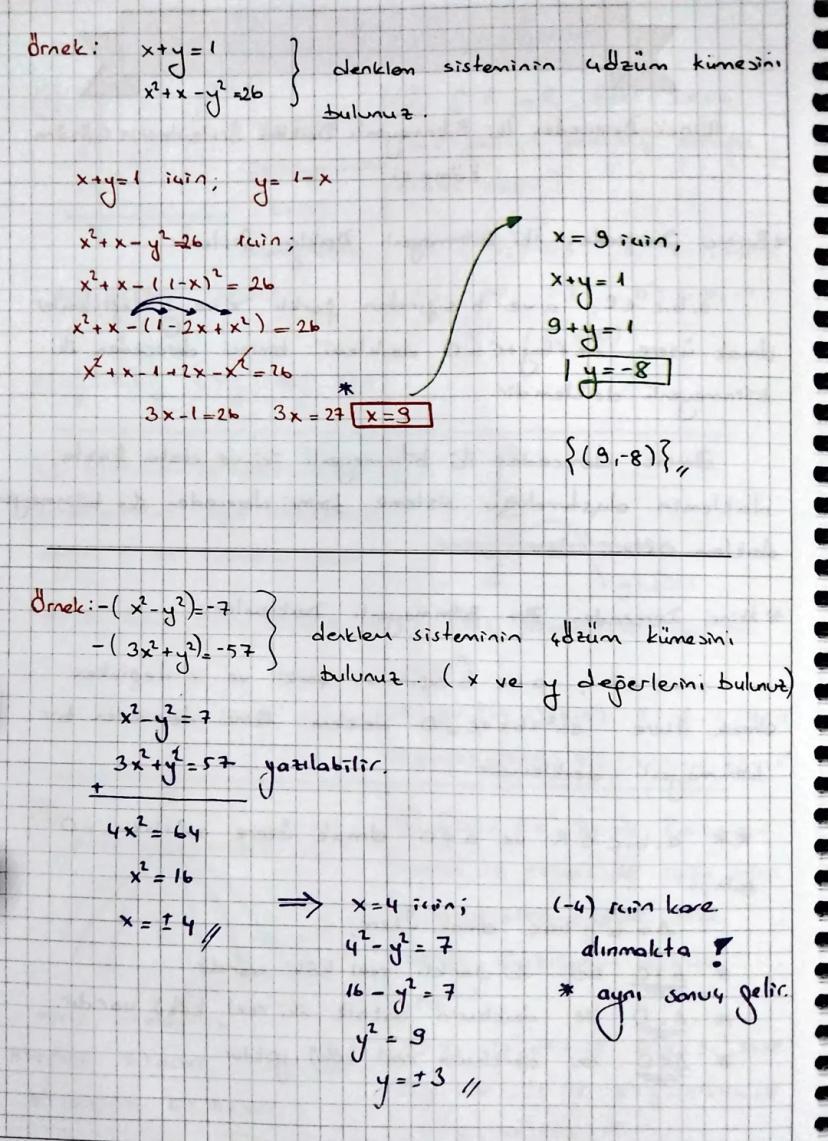 Örnek: x+y=1
x²+x-y²=26
denklem sisteminin çözüm kümesini
bulunuz.
x+y=1 için; y=1-x
x²+x-y²=26 için;
x²+x-(1-x)²=26
x²+x-(1-2x+x²)=26
x²+x-1+2x-x²=26
*
3x-1=26 3x=27 x=9
x=9 için;
x+y=1
9+y=1
y=-8
{(9,-8)}
Örnek: -(x²-y²)=-7
-(3x²+y²)=-57
denklem sisteminin çözüm kümesini
bulunuz. (x ve y değerlerini bulunuz)
x²-y²=7
3x²+y²=57 yazılabilir.
+
4x²=64
x²=16
x=±4 //
⇒ x=4 için;
4²-y²=7
16-y²=7
y²=9
y=±3 //
(-4) için kare
alınmakta !
* aynı sonuç gelir.